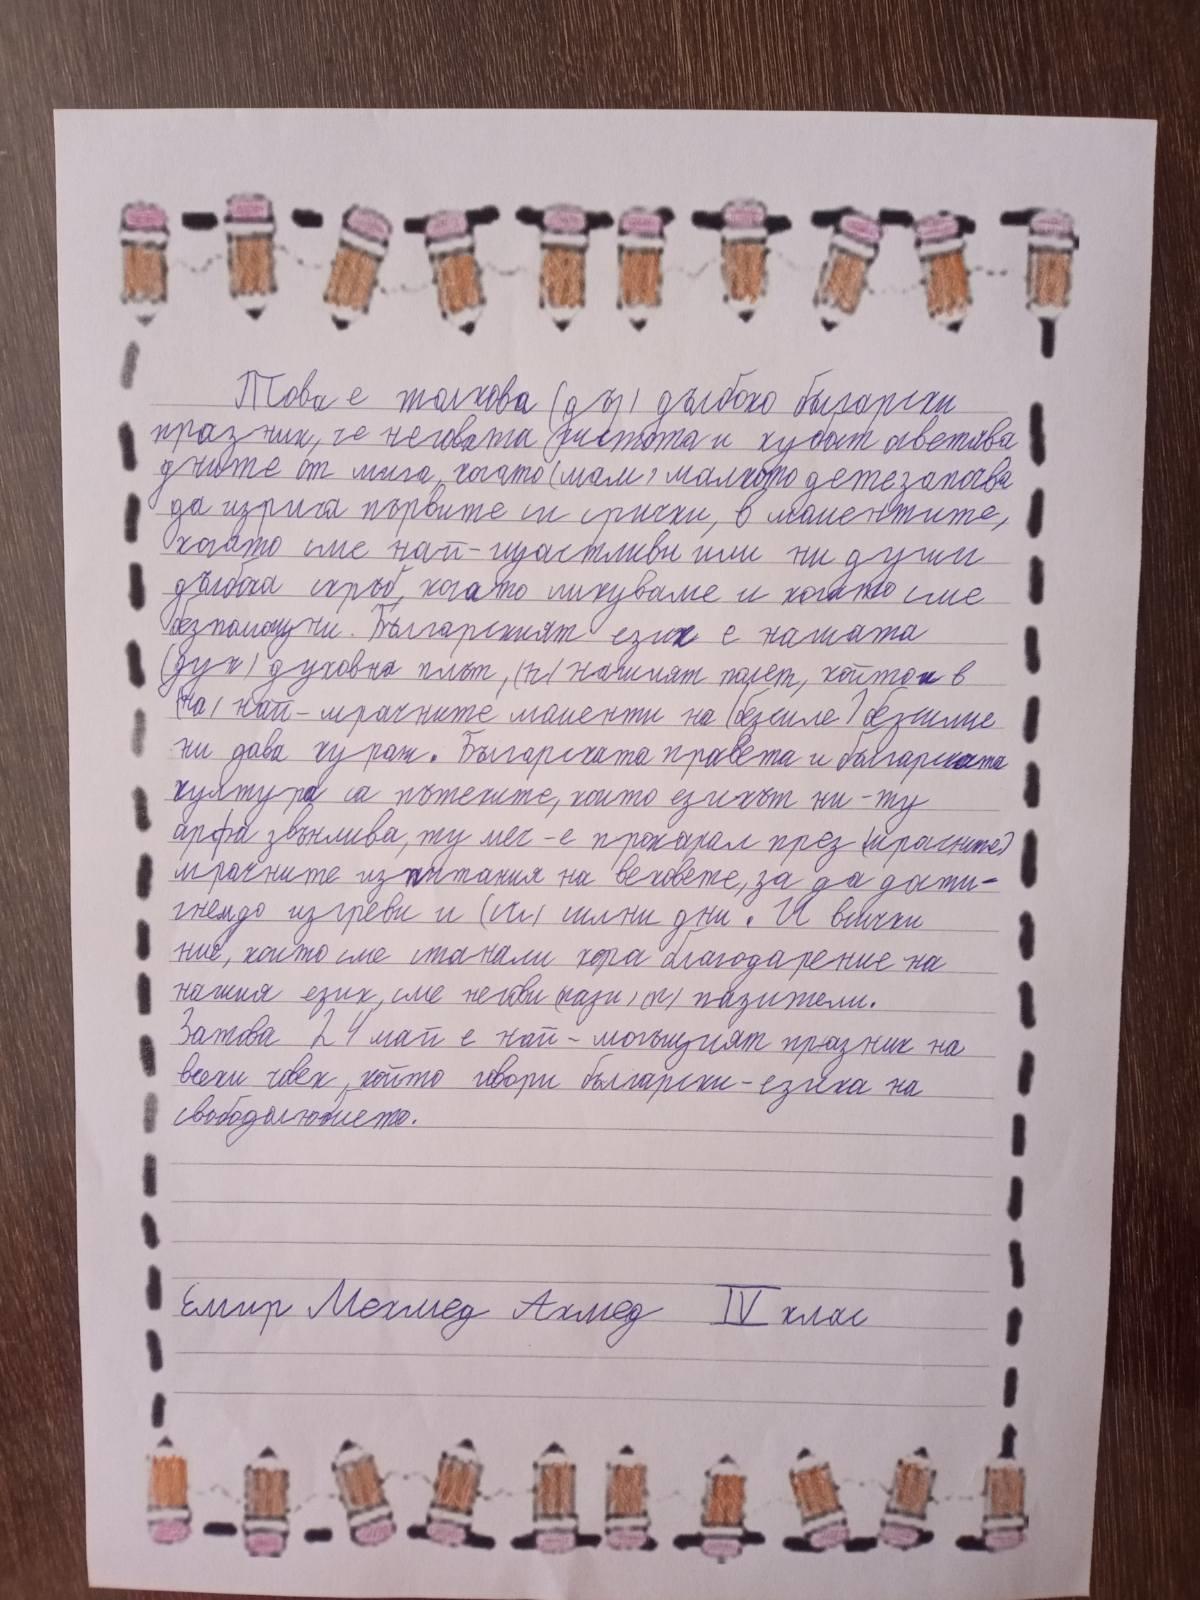 Това е толкова (дъ) дълбоко български
празник, че неговата (чистота и хубост осветява
дните от мига, когато (мам) малкото дете започва
да изрича първите си срички, в моментите,
когато сме най-щастливи или ни души
дълбока скръб, когато ликуваме и когато сме
безпомощни. Българският език е нашата
(дух) духовна плът, (н) нашият полет, който и в
(на) най-мрачните моменти на (безсиле) безсилие
ни дава кураж. Българската просвета и българската
култура са пътеките, които езикът ни-ту
арфа звънлива, ту меч-е прокарал през (мрасните)
мрачните изпитания на вековете, за да дости-
гнем до изгреви и (сл) силни дни. И всички
ние, които сме станали хора благодарение на
нашия език, сме негови (пази) (п) пазители.
Затова 24 май е най-могъщият празник на
всеки човек, който говори български-езика на
свободолюбието.
Емир Мехмед Ахмед IV клас